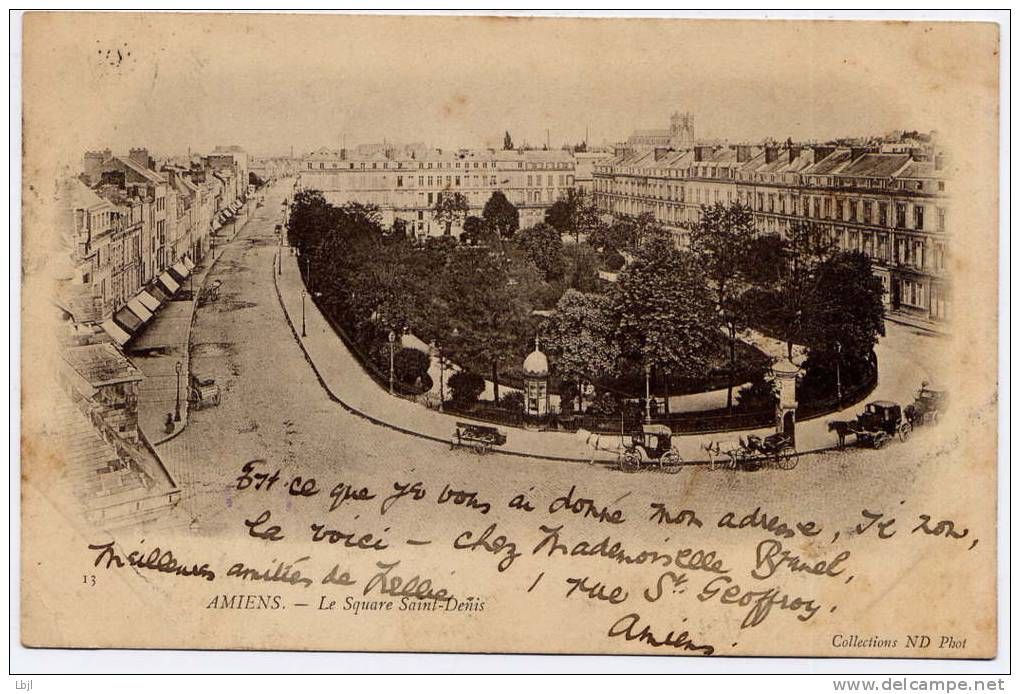 Est-ce que je vous ai donné mon adresse, si non,
la voici – chez Mademoiselle Brunel,
Meilleures amitiés de Nellie 1 rue St Geoffroy.
Amiens.
13
AMIENS. — Le Square Saint-Denis
Collections ND Phot
Lbjl
www.delcampe.net